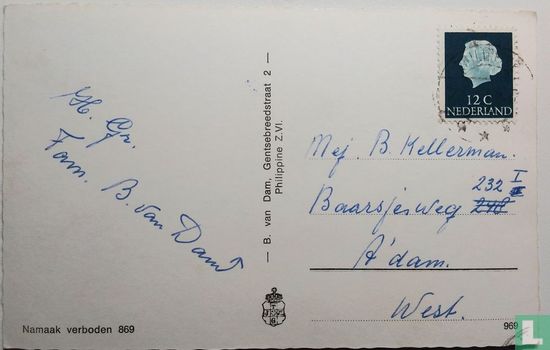 12 C
NEDERLAND
H. Gr.
Fam. B. van Dam
— B. van Dam, Gentsebreedstraat 2 —
Philippine Z.Vl.
Mej. B. Kellerman.
232 I
Baarsjesweg 248
A'dam.
West.
Namaak verboden 869
969
L